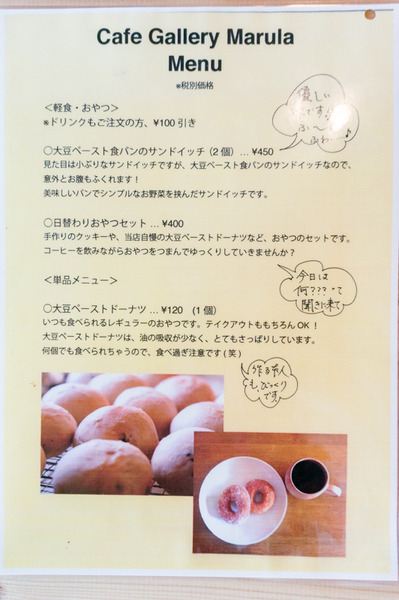 Cafe Gallery Marula
Menu
※税別価格
＜軽食・おやつ＞
※ドリンクもご注文の方、¥100 引き
優しい
です♪
ふ～
ふわ～♪
○大豆ペースト食パンのサンドイッチ (2 個) ... ¥450
見た目は小ぶりなサンドイッチですが、大豆ペースト食パンのサンドイッチなので、
意外とお腹もふくれます！
美味しいパンでシンプルなお野菜を挟んだサンドイッチです。
○日替わりおやつセット ... ¥400
手作りのクッキーや、当店自慢の大豆ペーストドーナツなど、おやつのセットです。
コーヒーを飲みながらおやつをつまんでゆっくりしていきませんか？
今日は
何???って
聞きに来て
＜単品メニュー＞
○大豆ペーストドーナツ ... ¥120 (1 個)
いつも食べられるレギュラーのおやつです。テイクアウトももちろん OK！
大豆ペーストドーナツは、油の吸収が少なく、とてもさっぱりしています。
何個でも食べられちゃうので、食べ過ぎ注意です ( 笑 )
作る本人
も、びっくり
です。